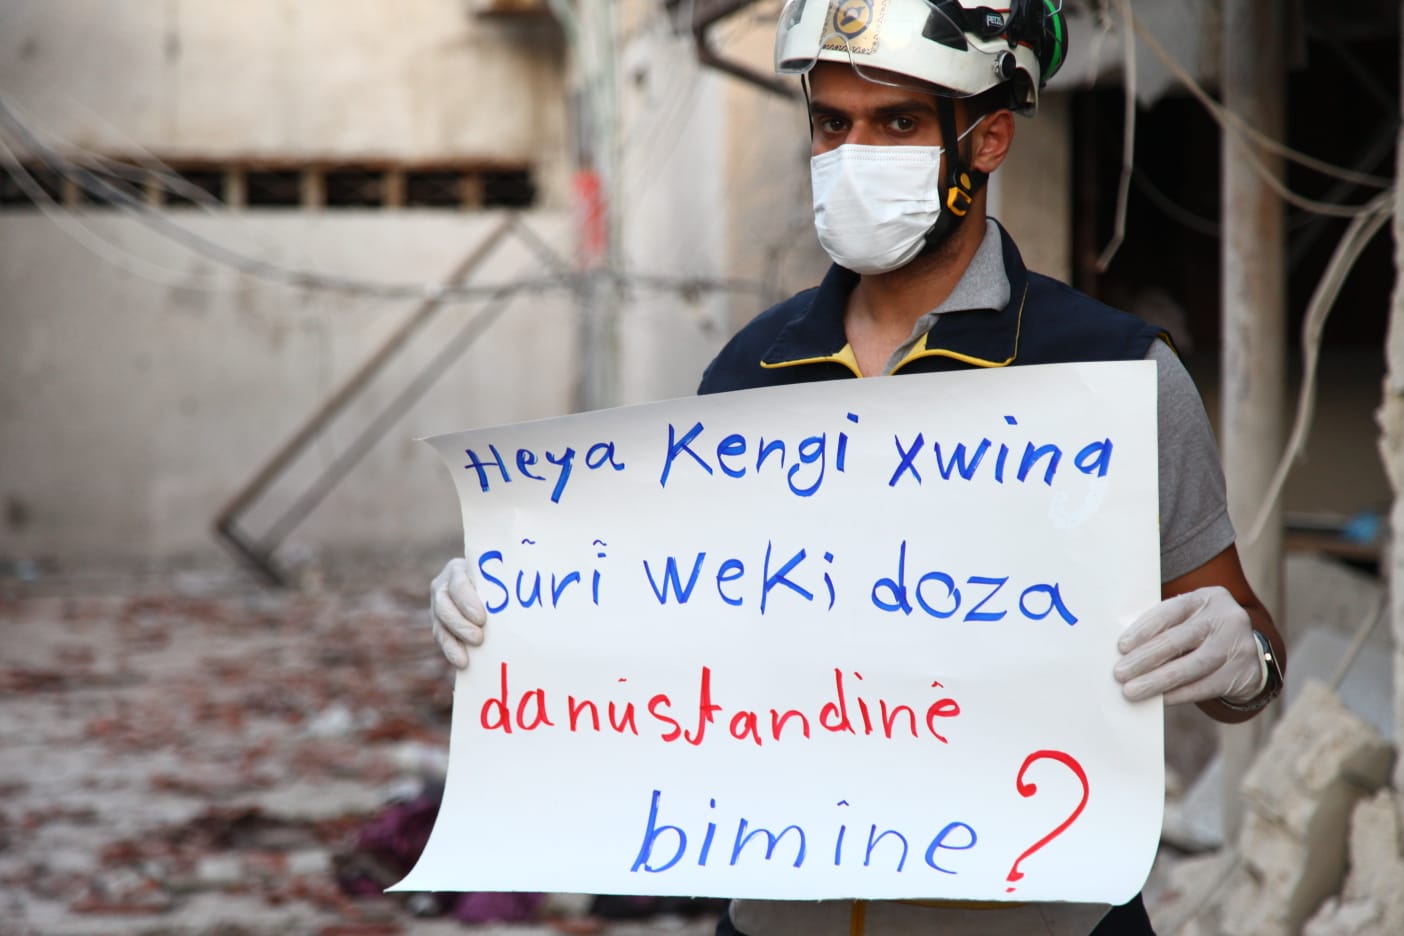 PETZL
Heya Kengi xwina
Sûrî weKi doza
danûstandinê
bimîne?